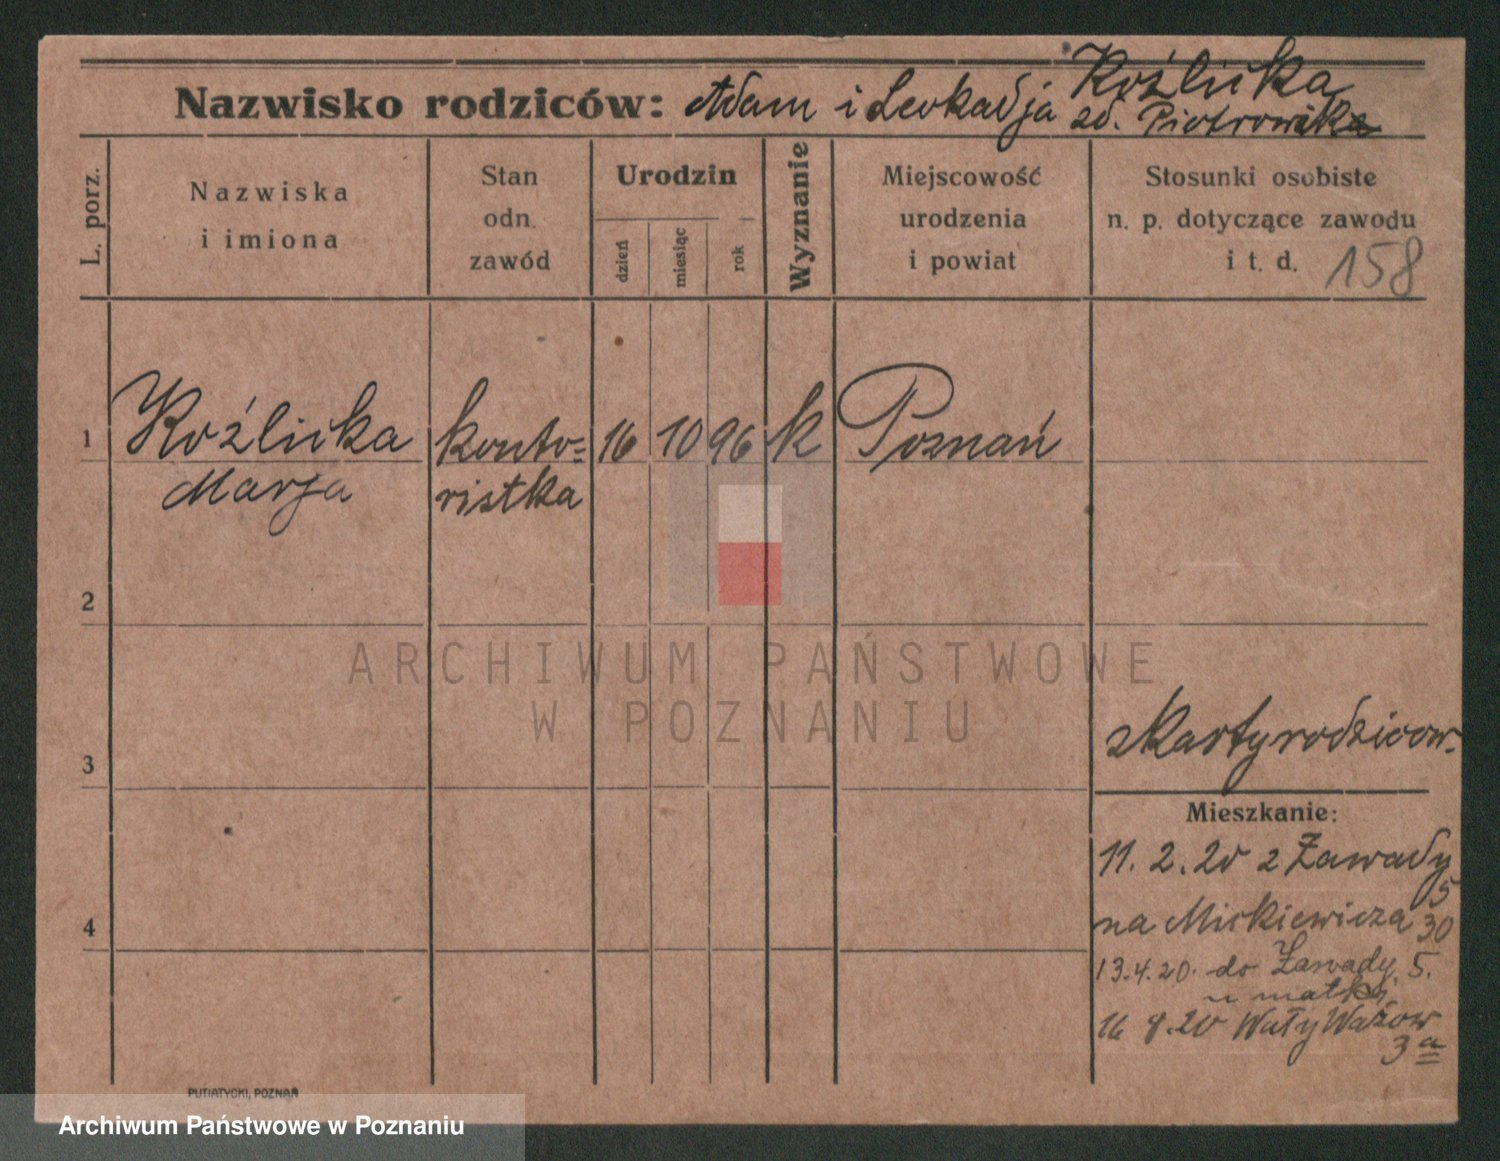 Nazwisko rodziców: Adam i Leokadja Koźlicka
zd. Piotrowska
L. porz.
Nazwiska
i imiona
Stan
odn.
zawód
Urodzin
dzień
miesiąc
rok
Wyznanie
Miejscowość
urodzenia
i powiat
Stosunki osobiste
n. p. dotyczące zawodu
i t. d. 158
1 Koźlicka konto= 16 10 96 k Poznań
Marja ristka
2
ARCHIWUM PAŃSTWOWE
W POZNANIU
3
z karty rodziców.
Mieszkanie:
11. 2. 20 z Zawady
5
4
na Mickiewicza 30
13.4.20. do Zawady 5.
u matki
16 8.20 Wały Wazów
3 a
PUTIATYCKI, POZNAŃ
Archiwum Państwowe w Poznaniu